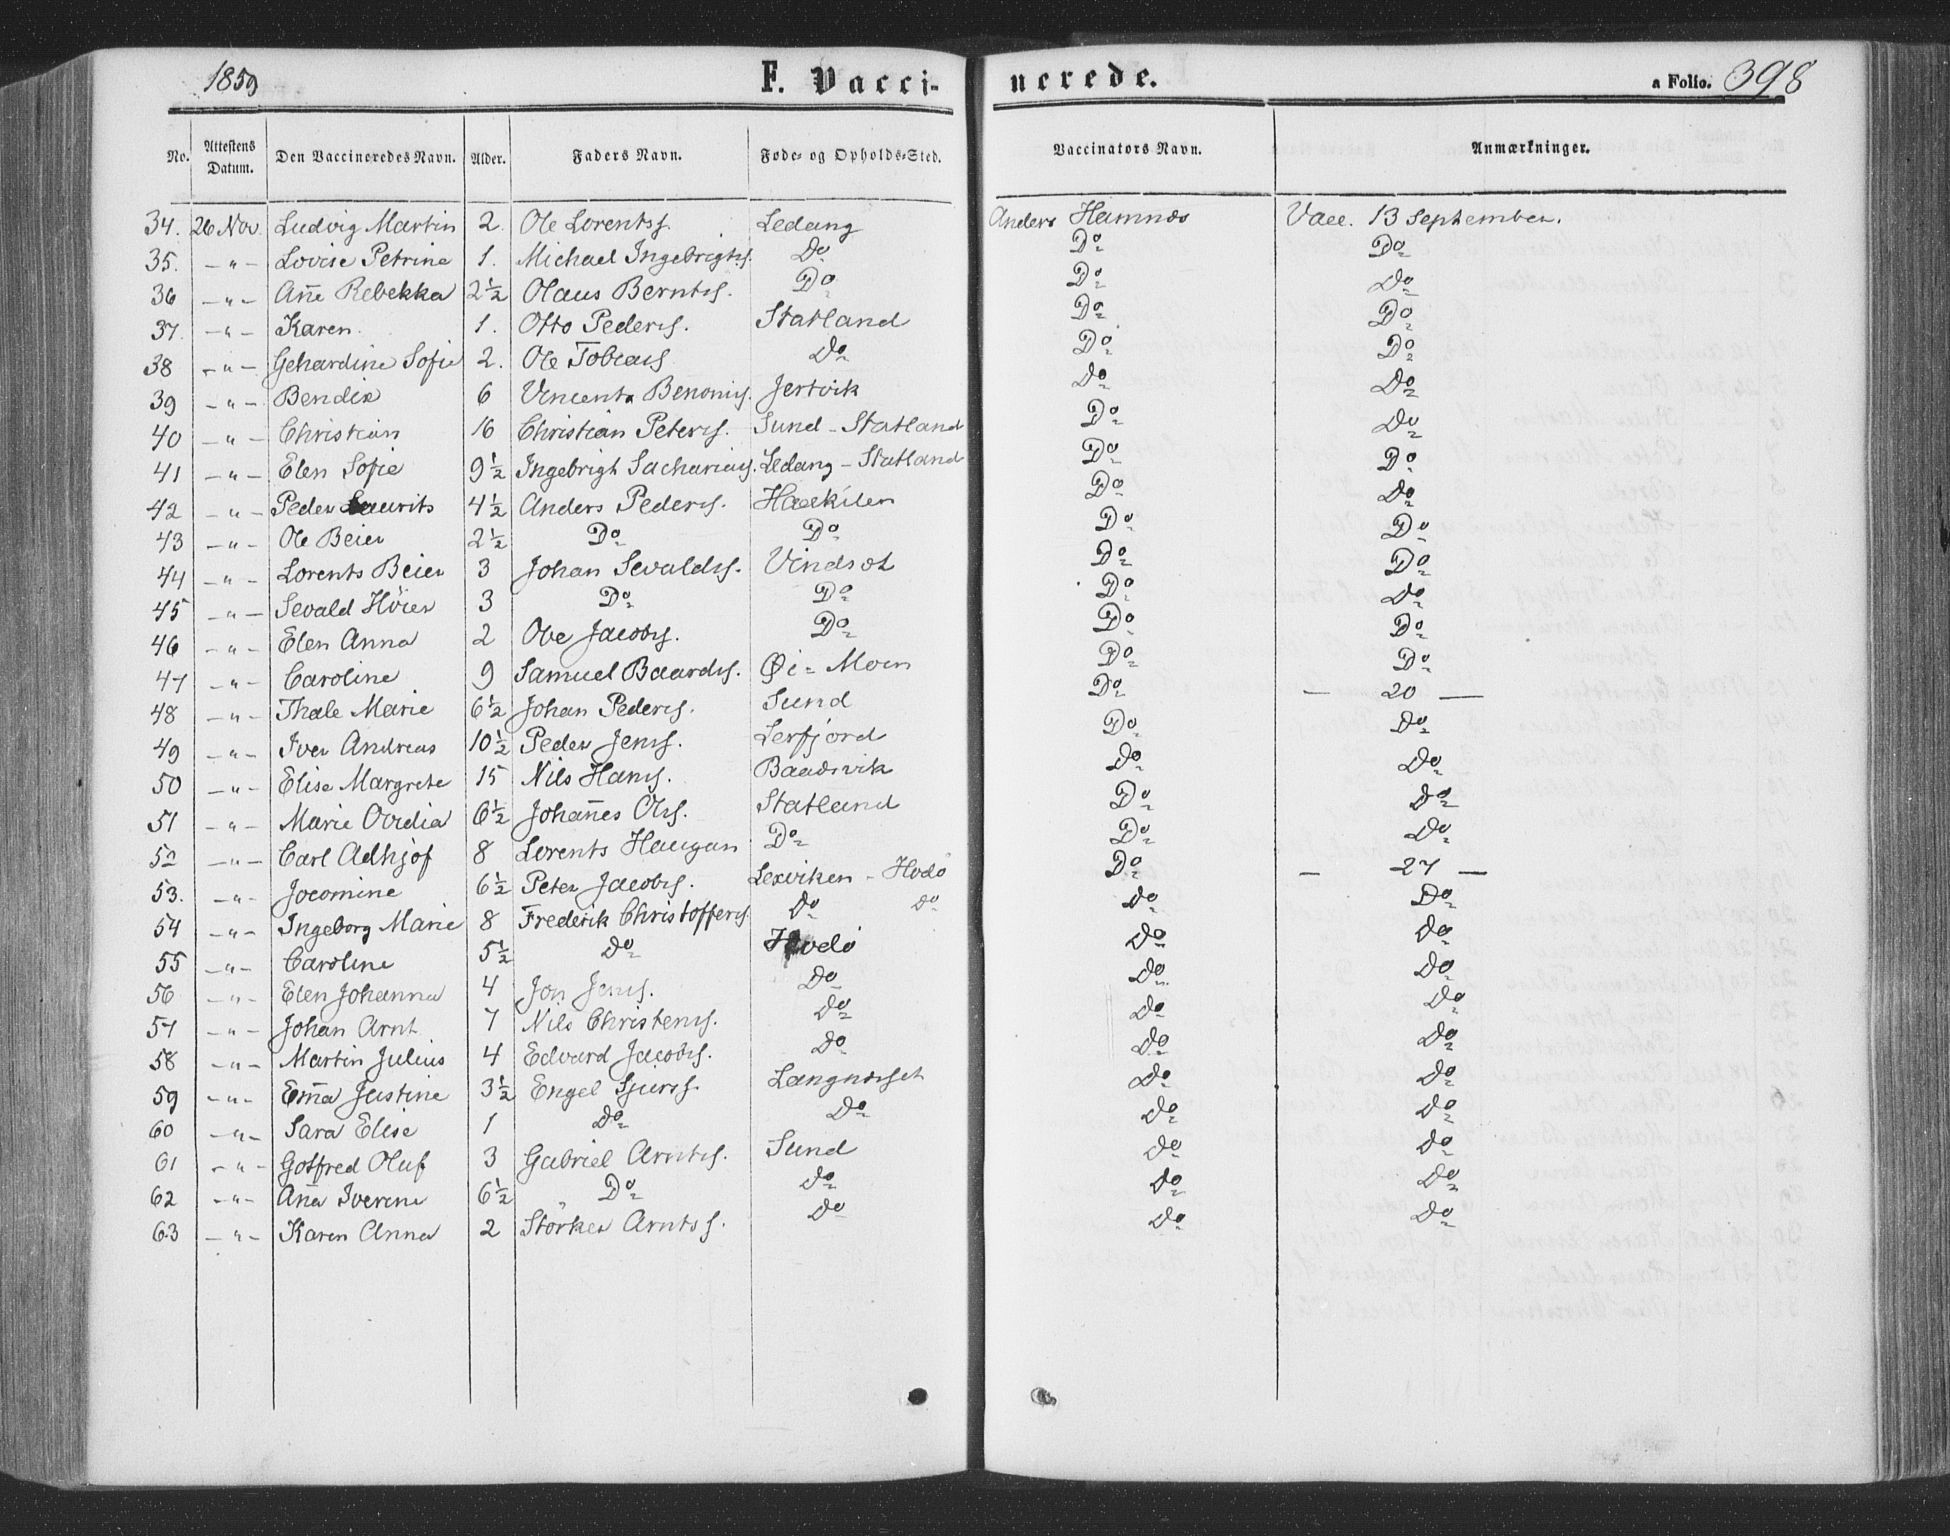 1859 F. Vacci- nerede. a Folio. 398
No. Attestens Datum. Den Vaccineredes Navn. Alder. Faders Navn. Føde- og Opholds-Sted. Vaccinators Navn. Anmærkninger.
34. 26 Nov Ludvig Martin 2. Ole Lorentss. Ledang Anders Hamnøs Vacc. 13 September.
35. -"- Lovise Petrine 1. Michael Ingebrigtss. Do Do Do
36 -"- Añe Rebekka 2½ Olaus Berntss. Do Do Do
37. -"- Karen 1. Otto Pederss. Statland Do Do
38 -"- Gehardine Sofie 2. Ole Tobiass Do Do Do
39 -"- Bendix 6 Vincents Benonis. Jertvik Do Do
40 -"- Christian 16 Christian Peterss. Sund - Statland Do Do
41 -"- Elen Sofie 9½ Ingebrigt Sachariass. Ledang - Statland Do Do
42 -"- Peder Laurits 4½ Anders Pederss. Do Do
43 -"- Ole Beier 2½ Do Do Do Do
44 -"- Lorents Beier 3 Johan Sevaldss. Vindsæt Do Do
45 -"- Sevald Höier 3 Do Do Do Do
46 -"- Elen Anna 2 Ove Jacobss. Do Do Do
47 -"- Caroline 9 Samuel Baardss. Øi - Moen Do Do
48 -"- Thale Marie 6½ Johan Pederss. Sund Do — 20 —
49 -"- Iver Andreas 10½ Peder Jenss. Lerfjord Do Do
50 -"- Elise Margrete 15 Nils Hanss. Baadsvik Do Do
51 -"- Marie Ovidia 6½ Johañes Olss. Statland Do Do
52 -"- Carl Adhjof 8 Lorents Haugan Do Do Do
53. -"- Jocomine 6½ Peter Jacobss. Lexviken - Hodø Do — 27 —
54 -"- Ingeborg Marie 8 Frederik Christofferss. Do Do Do Do
55 -"- Caroline 5½ Do Hodø Do Do
56 -"- Elen Johanna 4 Jon Jenss. Do Do Do
57 -"- Johan Arnt 7 Nils Christenss. Do Do Do
58 -"- Martin Julius 4 Edvard Jacobss. Do Do Do
59 -"- Em̃a Justine 3½ Engel Sjurss. Langnæset Do Do
60 -"- Sara Elise 1 Do Do Do Do
61 -"- Gotfred Oluf 3 Gabriel Arntss. Sund Do Do
62 -"- Aña Iverine 6½ Do Do Do Do
63 -"- Karen Anna 2 Störker Arntss. Do Do Do